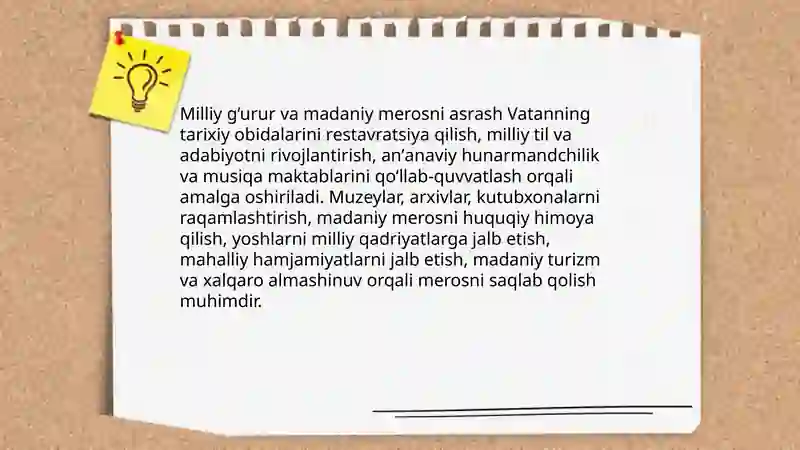 Milliy gʻurur va madaniy merosni asrash Vatanning
tarixiy obidalarini restavratsiya qilish, milliy til va
adabiyotni rivojlantirish, anʼanaviy hunarmandchilik
va musiqa maktablarini qoʻllab-quvvatlash orqali
amalga oshiriladi. Muzeylar, arxivlar, kutubxonalarni
raqamlashtirish, madaniy merosni huquqiy himoya
qilish, yoshlarni milliy qadriyatlarga jalb etish,
mahalliy hamjamiyatlarni jalb etish, madaniy turizm
va xalqaro almashinuv orqali merosni saqlab qolish
muhimdir.